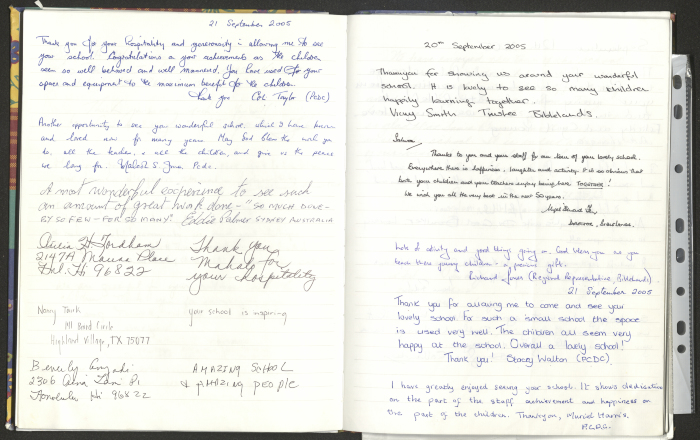 21 September 2005
Thank you for your hospitality and generosity in allowing me to see
your school. Congratulations on your achievements as the children
seem so well behaved and well mannered. You have used for your
space and equipment to the maximum benefit for the children.
Thank you Col Taylor (PCDC)
Another opportunity to see you wonderful school, which I have known
and loved now for many years. May God bless the work you
do, all the teachers, & all the children, and give us the peace
we long for. PCDC.
A most wonderful experience to see such
an amount of great work done - "SO MUCH DONE -
BY SO FEW - FOR SO MANY." Eddie Palmer SYDNEY AUSTRALIA
Fordham
2147A Place
Hi 96822
Thank you
Mahalo for
your hospitality
Nancy
Highland Village, TX 75077
your school is inspiring
Beverly
2306 Pl
Honolulu Hi 96822
AMAZING SCHOOL
& AMAZING PEOPLE
20th September 2005
Thankyou for showing us around your wonderful
school. It is lovely to see so many children
happily learning together.
Vicky Smith Trustee Biblelands.
Thanks to you and your staff for our tour of your lovely school.
Everywhere there is happiness, laughter and activity. It is so obvious that
both your children and your teachers enjoy being here TOGETHER!
We wish you all the very best in the next 50 years.
Lots of activity and good things going on. God bless you as you
teach these young children - a precious gift.
Richard (Regional Representative, Biblelands)
21 September 2005
Thank you for allowing me to come and see your
lovely school. For such a small school the space
is used very well. The children all seem very
happy at the school. Overall a lovely school!
Thank you! Stacey Walton (PCDC).
I have greatly enjoyed seeing your school. It shows dedication
on the part of the staff, achievement and happiness on
the part of the children. Thankyou, Muriel Harris.
P.C.D.C.